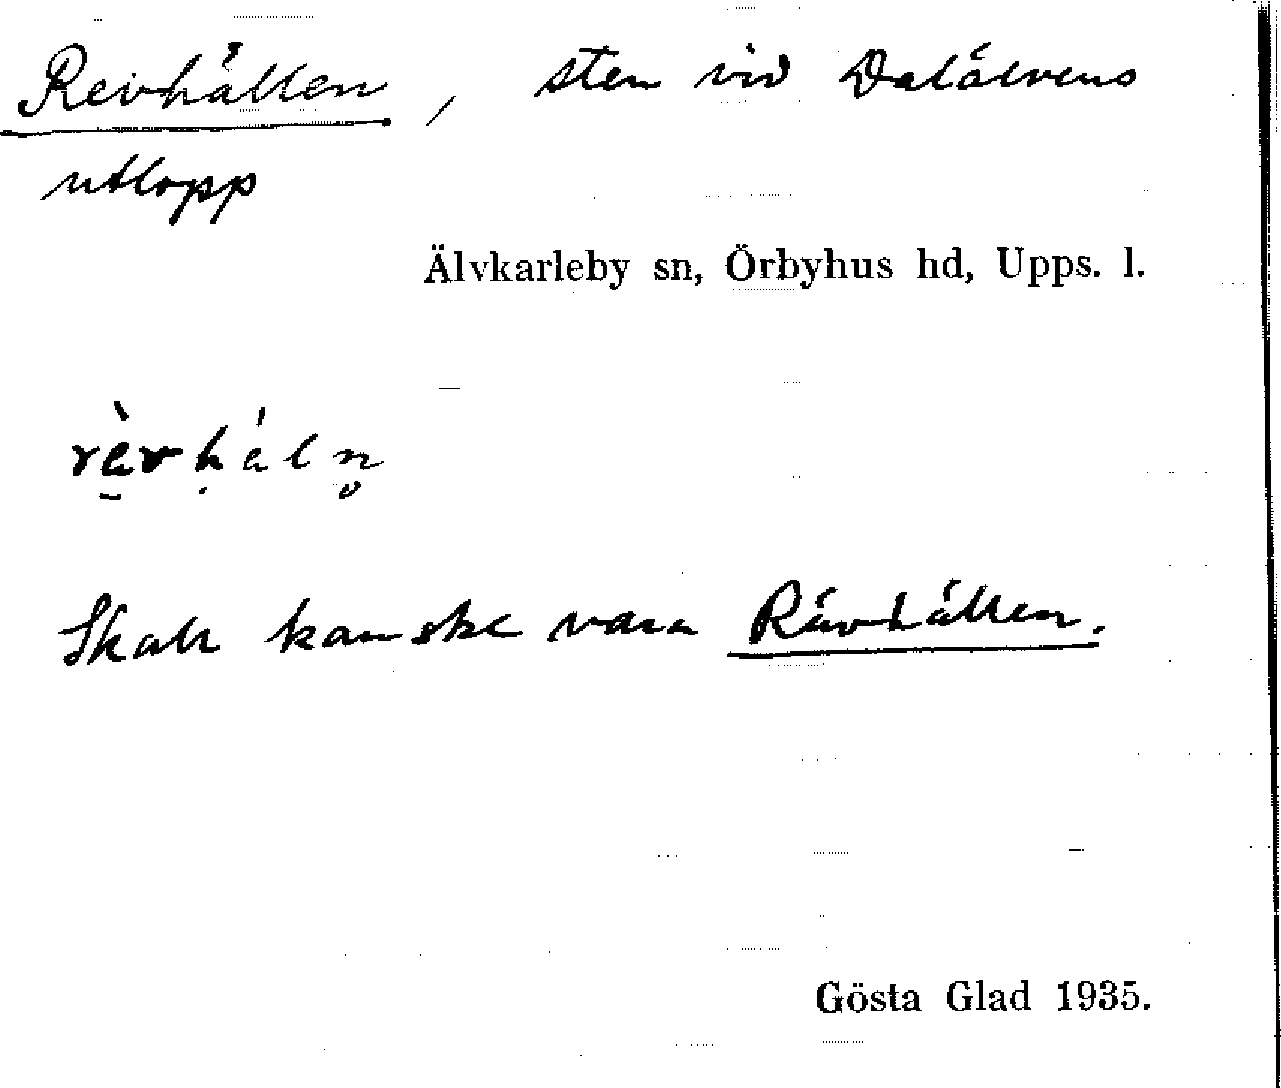 Revhällen, sten vid Dalälvens
utlopp
Älvkarleby sn, Örbyhus hd, Upps. l.
rèvhäln̥
Skall kanske vara Rävhällen.
Gösta Glad 1935.